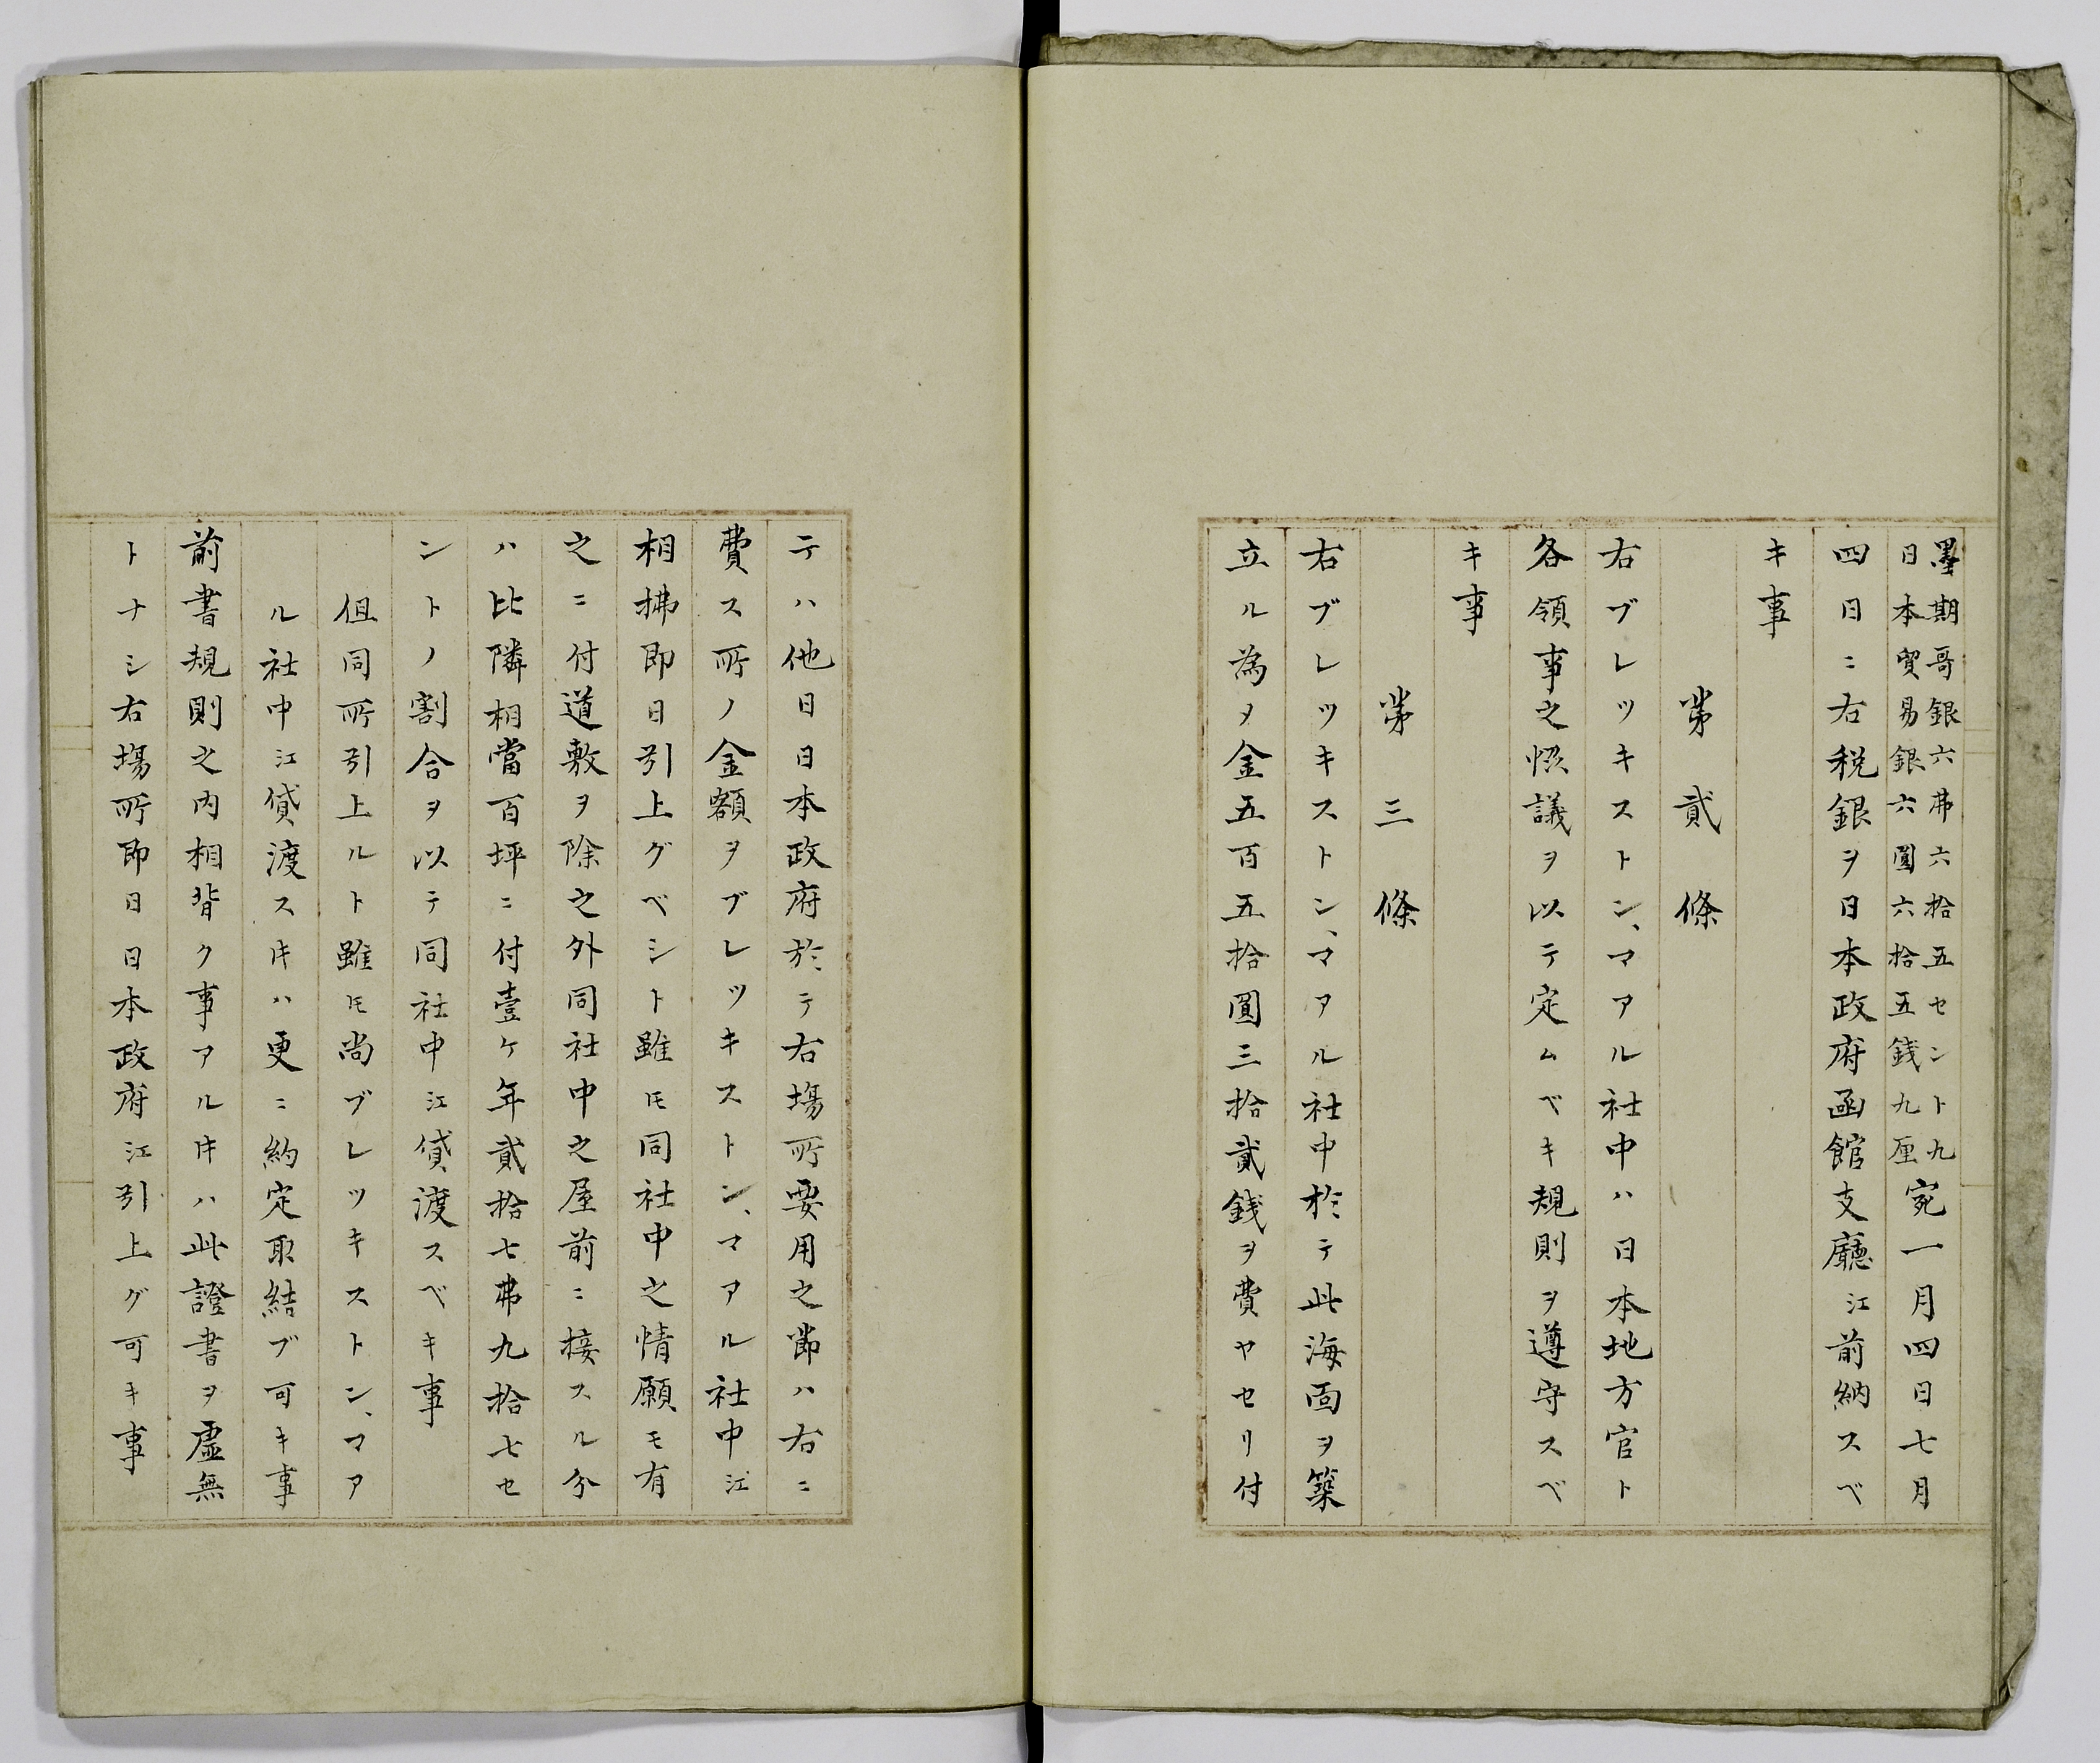 墨期哥銀六弗六拾五セント九
日本貿易銀六圓六拾五銭九厘
宛一月四日七月
四日ニ右税銀ヲ日本政府函館支廳江前納スベ
キ事
第貳條
右ブレッキストン、マアル社中ハ日本地方官ト
各領事之恊議ヲ以テ定ムベキ規則ヲ遵守スベ
キ事
第三條
右ブレツキストン、マアル社中於テ此海面ヲ築
立ル為メ金五百五拾圓三拾貳銭ヲ費ヤセリ付
テハ他日日本政府於テ右塲所要用之節ハ右ニ
費ス所ノ金額ヲブレツキストン、マアル社中江
相拂即日引上グベシト雖モ同社中之情願モ有
之ニ付道敷ヲ除之外同社中之屋前ニ接スル分
ハ比隣相當百坪ニ付壹ケ年貳拾七弗九拾七セ
ントノ割合ヲ以テ同社中江貸渡スベキ事
但同所引上ルト雖モ尚ブレツキストン、マア
ル社中江貸渡スキハ更ニ約定取結ブ可キ事
前書規則之内相背ク事アルキハ此證書ヲ虚無
トナシ右塲所即日日本政府江引上グ可キ事